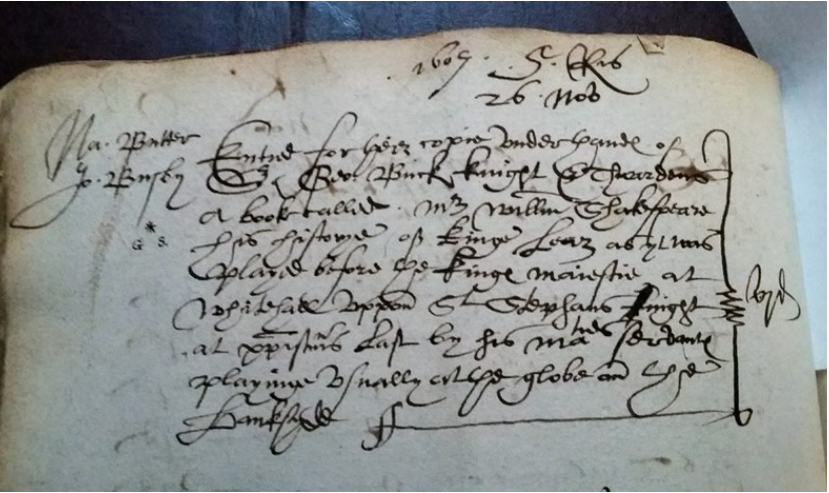 1607. 5. Ris
26 Nov
Na. Butter
Jo. Busby
Entred for their copie under thandes of
Sr Geo. Buck knight & Thwardens
A booke called. Mr William Shakespeare
his historye of Kinge Lear as yt was
played before the Kinges maiestie at
Whitehall vppon St Stephans night
at xpistmas Last by his maties servantes
playinge vsually at the globe on the
Banksyde
vjd